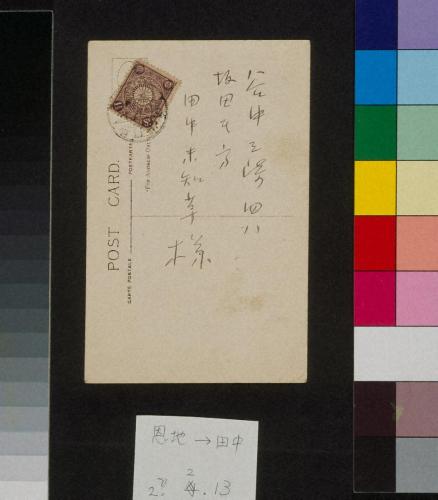 谷中三崎四八
坂田も方
田中未知草
様
POST CARD.
CARTE POSTALE
POSTKARTE
恩地→田中
2
4.13